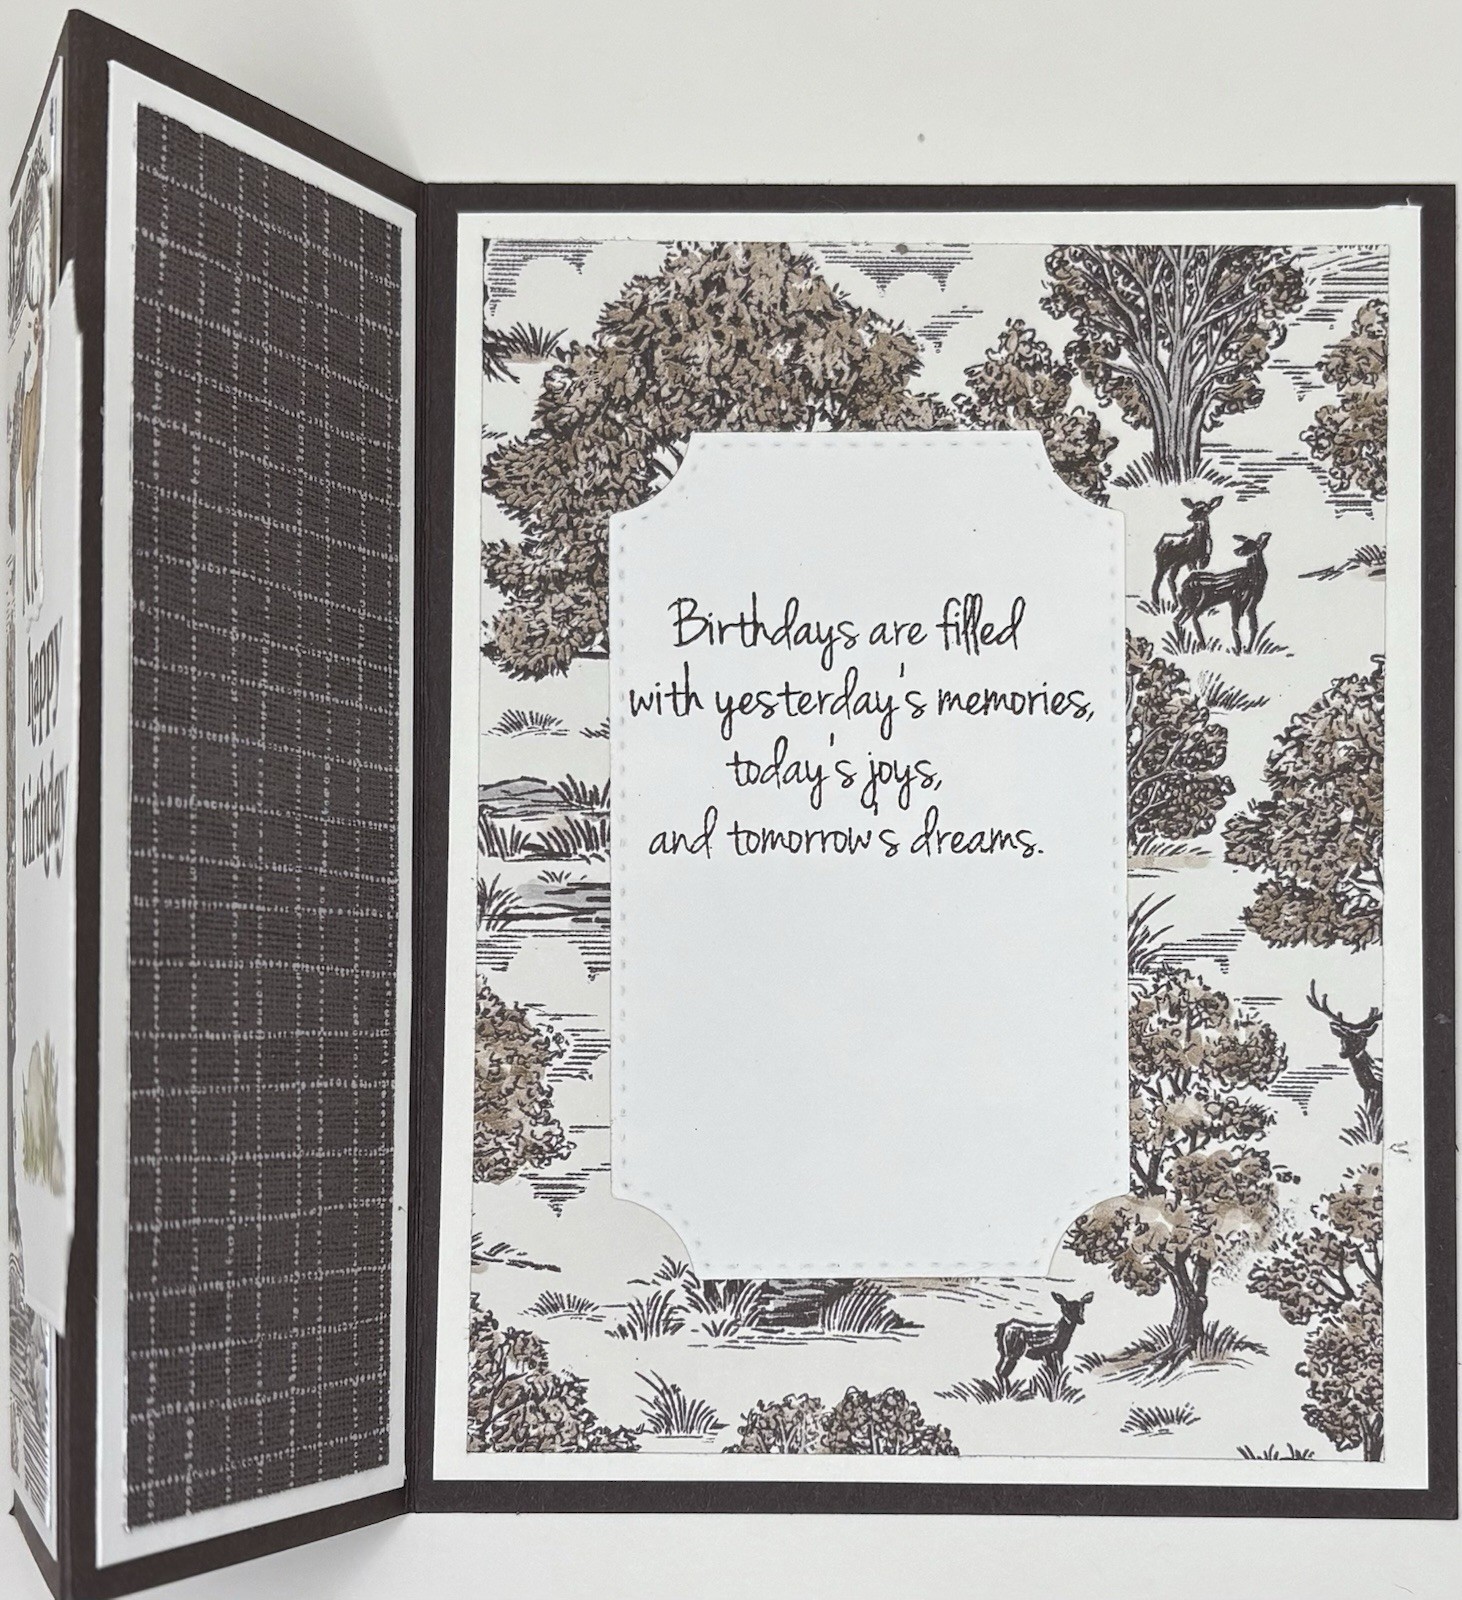 happy
birthday
Birthdays are filled
with yesterday's memories,
today's joys,
and tomorrow's dreams.